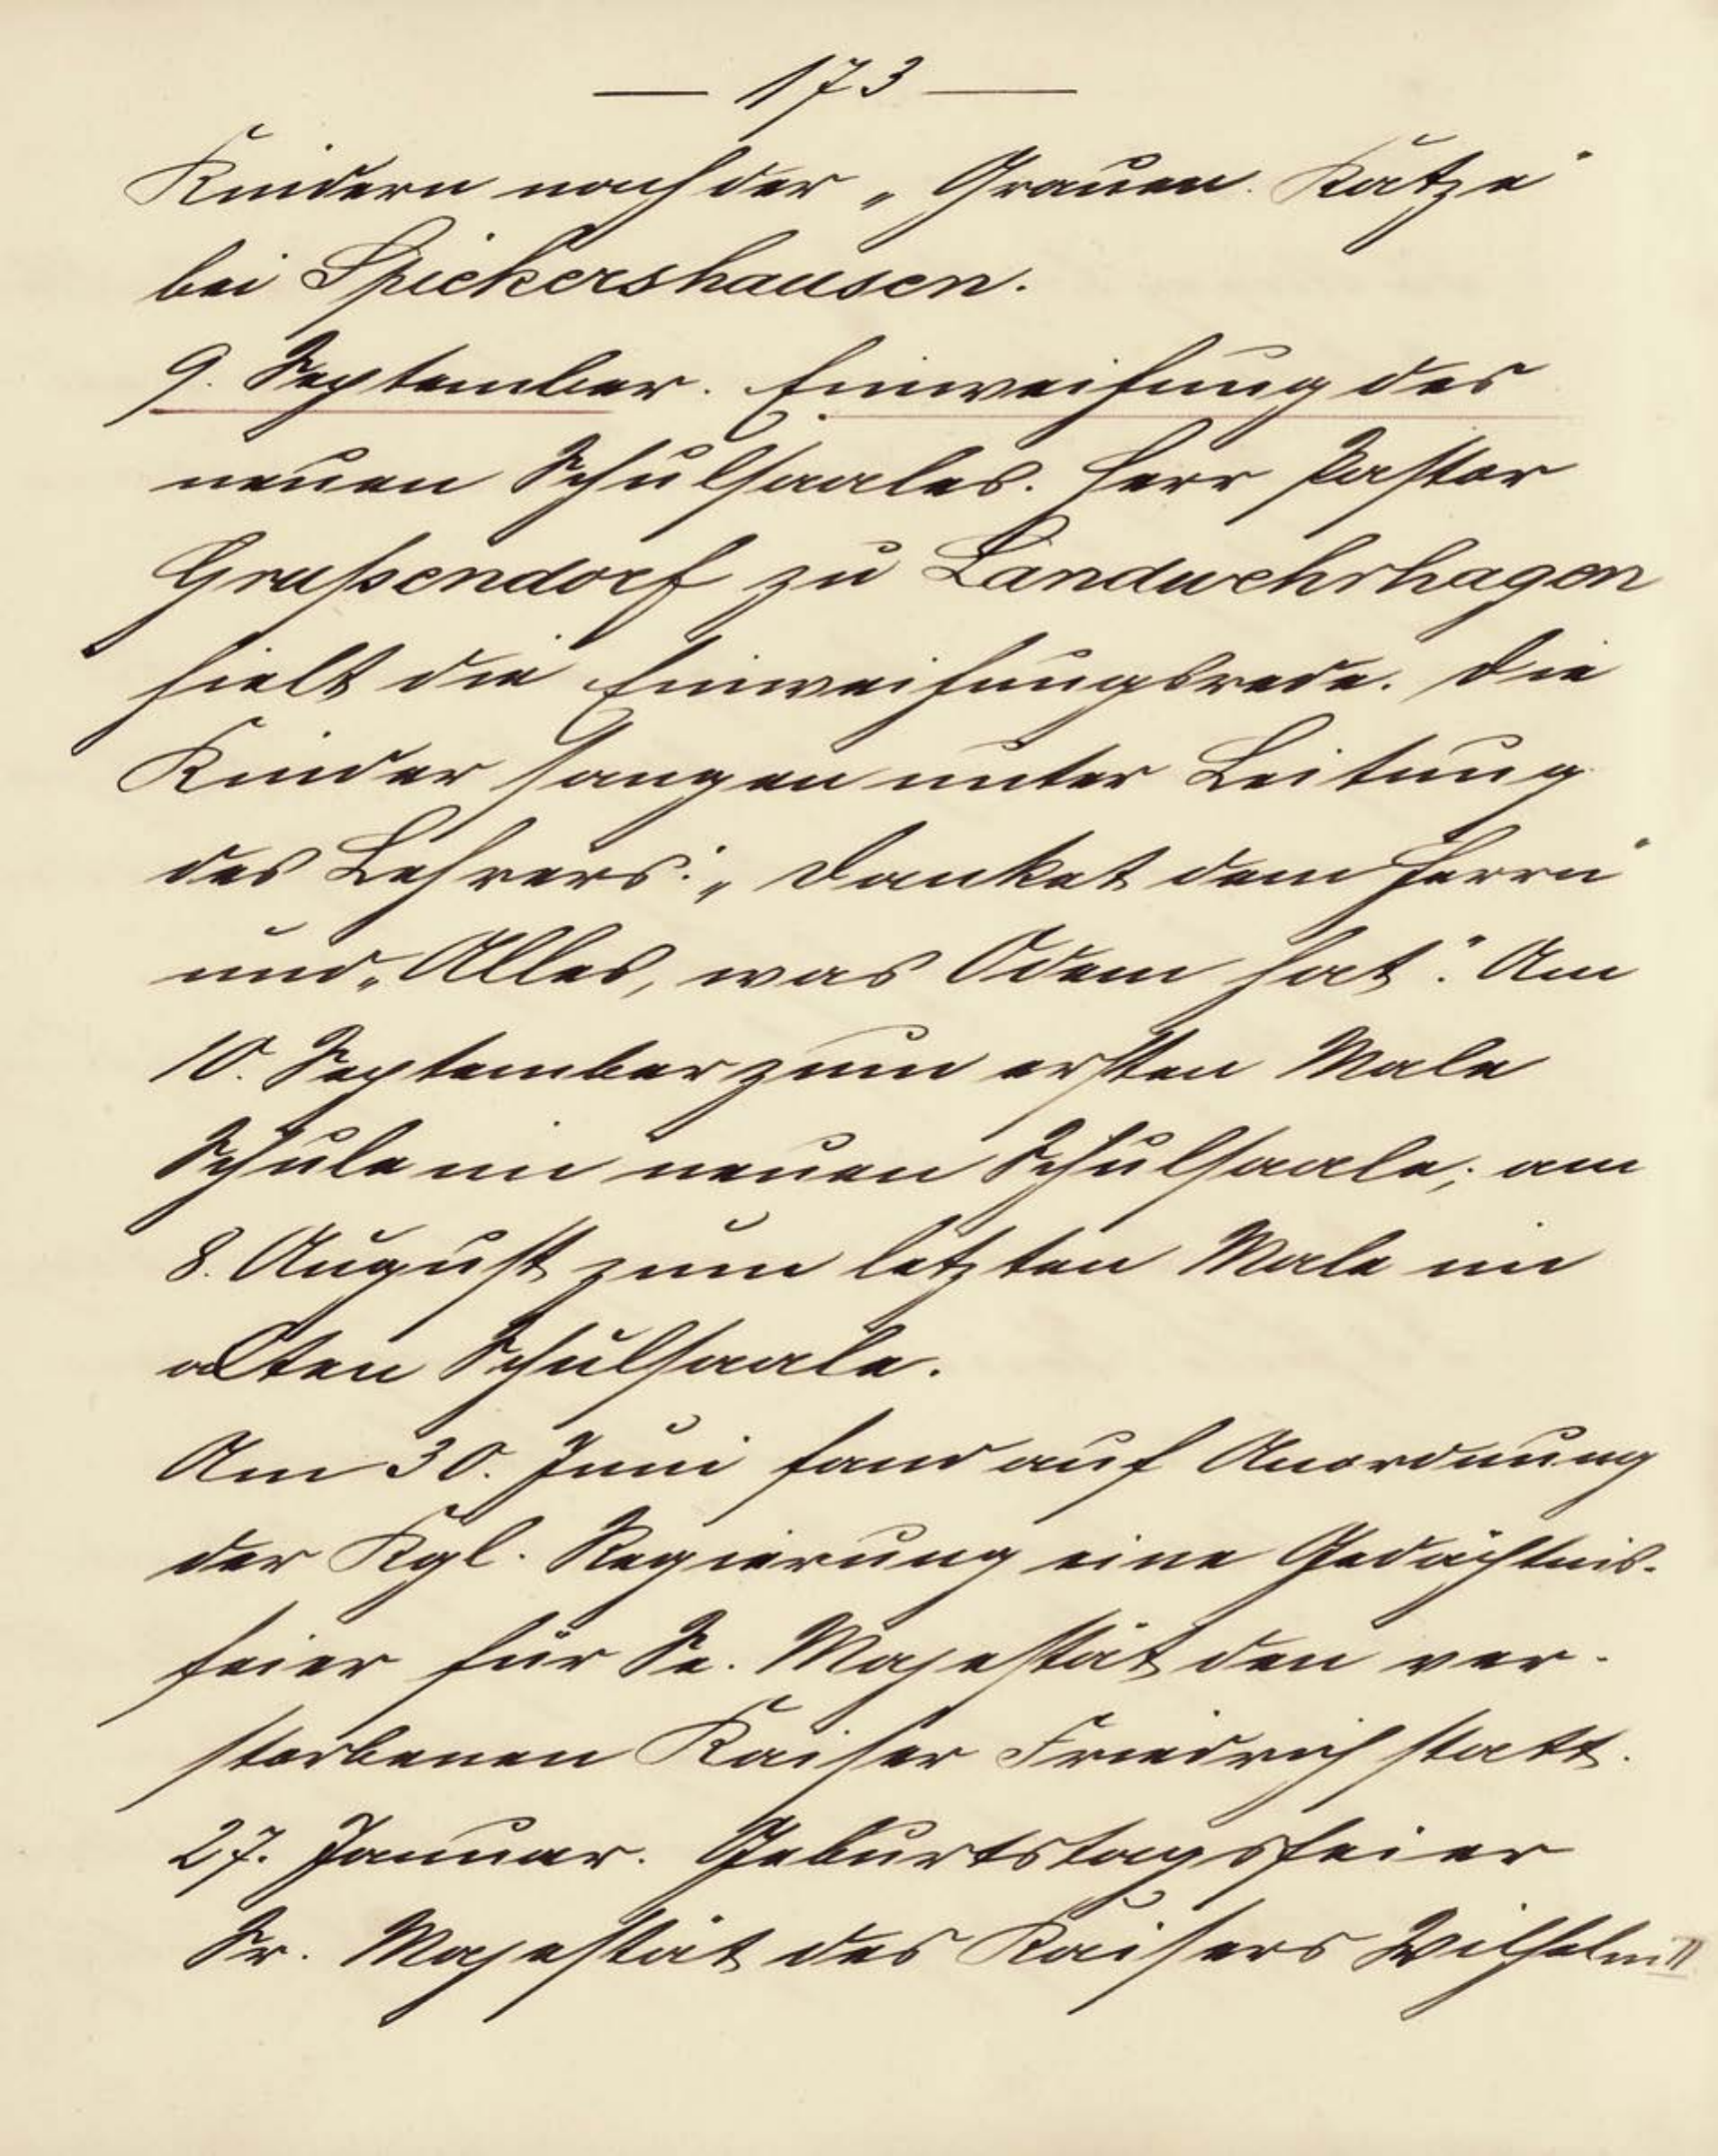 — 173 —
Kindern nach der „Grauen Katze“
bei Spiekershausen.
9. September. Einweihung des
neuen Schulsaales. Herr Pastor
Grußendorf zu Landwehrhagen
hielt die Einweihungsrede. Die
Kinder sangen unter Leitung
des Lehrers: „Danket dem Herrn“
und „Alles, was Odem hat“. Am
10. September zum ersten Male
Schule im neuen Schulsaale; am
8. August zum letzten Male im
alten Schulsaale.
Am 30. Juni fand auf Anordnung
der Kgl. Regierung eine Gedächtnis-
feier für Se. Majestät den ver-
storbenen Kaiser Friedrich statt.
27. Januar. Geburtstagsfeier
Sr. Majestät des Kaisers Wilhelm II